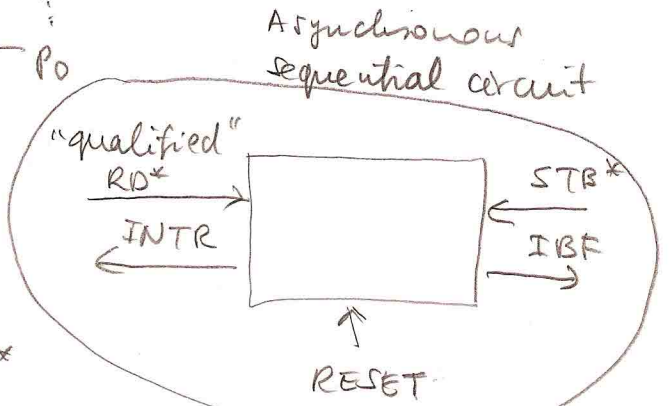 Asynchronous
sequential circuit
P0
"qualified"
RD*
STB*
INTR
IBF
*
RESET